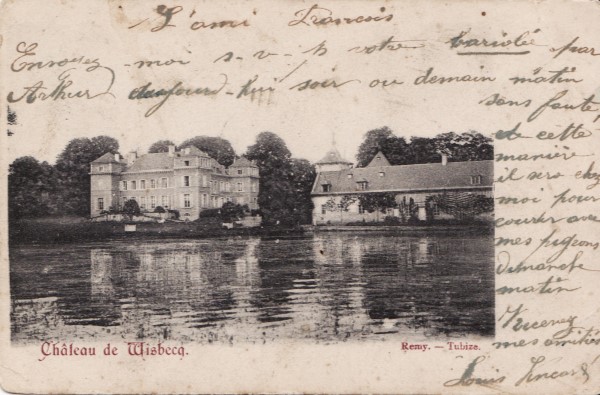 L'ami François
Envoyez-moi s-v-p votre bariolé par
Arthur aujourd-hui soir ou demain matin
sans faute,
de cette
manière
il sera chez
moi pour
courrir avec
mes pigeons
dimanche
matin
mes amitiés
Louis
Château de Wisbecq.
Remy. — Tubize.